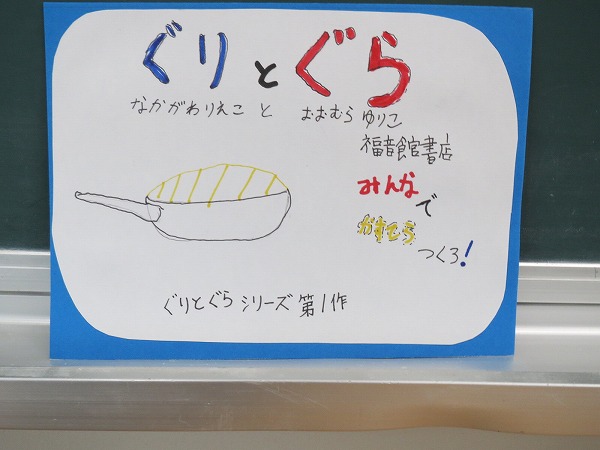 ぐりとぐら
なかがわりえこ と おおむらゆりこ
福音館書店
みんな
で
かすてら
つくろ!
ぐりとぐらシリーズ第1作